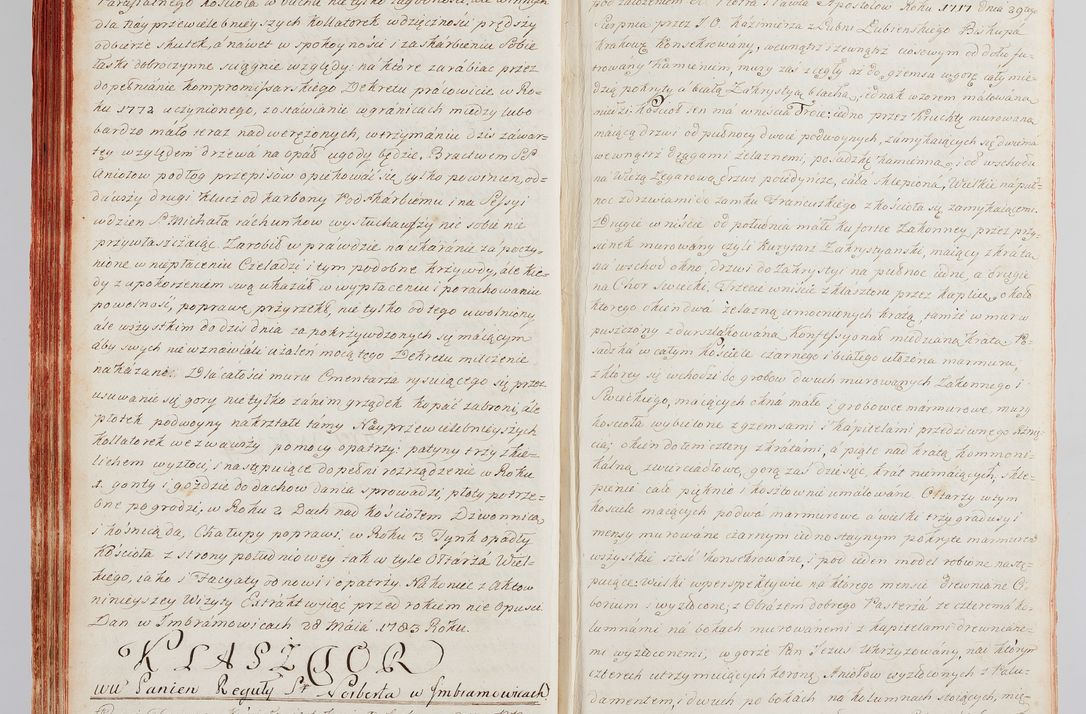 dla Nayprzewielebnieyszych kollatorek wdzięczności prędszy
odbierze skutek, a nawet w spokoyności i zaskarbieniu Sobie
łaski dobroczynne ściągnie względy: na które zarabiać przez
dopełnianie kompromissarskiego Dekretu pracowicie w Ro-
ku 1773 uczynionego, zostawianie w granicach miedzy lubo
bardzo mało teraz nadweręzonych, utrzymaniu dziś zawar-
tey względem drzewa na opał ugody będzie, Bractwem SS
Aniołow podłog przepisow opiekować się tylko powinien, od-
dawszy drugi klucz od karbony Podskarbiemu i na Sessyi
w dzien S. Michała rachunkow wysłuchawszy nic sobie nie
przywłaszczaiąc. Zarobił wprawdzie na ukaranie za poczy-
nione w niepłaceniu Czeladzi i tym podobne krzywdy, ale kie-
dy z upokorzeniem swą ukazał w wypłaceniu i porachowaniu
powolność, poprawę przyrzekł, nie tylko od tego uwolniony
ale wszystkim do dziś dnia za pokrzywdzonych się maiącym
aby swych nie wznawiali użaleń mocą tego Dekretu milczenie
nakazane. Dla całości muru Cmentarza rysuiącego się przez
usuwanie się gory nie tylko za nim grządek kopać zabroni, ale
płotek podwoyny na kształt tamy Nayprzewielebnieyszych
kollatorek wezwawszy pomocy opatrzy: patyny trzy z kie-
lichem wyzłoci, i następuiące dopełni rozrządzenie w Roku
1. gonty i goździe do dachow dania sprowadzi, płoty potrze-
bne pogrodzi, w Roku 2 Dach nad kościołem Dzwonnicą
i kośnicą da, Chałupy poprawi, w Roku 3 Tynk opadły
kościoła z strony południowey iak w tyle Ołtarza Wiel-
kiego, iako i Facyaty odnowi i opatrzy. Nakoniec z Aktow
ninieyszey Wizyty Extrakt wyiąć przed rokiem nie opuści
Dan w Imbramowicach 28 Maia 1783 Roku.
KLASZTOR
WW Panien Reguły S. Norberta w Imbramowicach
pod założeniem SS. Piotra i Pawła Apostołow Roku 1717 Dnia 29go
Sierpnia przez J.O. Kazimierza z Lubni Łubienskiego Biskupa
krakow: konsekrowany, wewnątrz i zewnątrz ciosowym od dołu fu-
trowany kamieniem, mury zaś z cegły aż do gzemsu w gorę cały mie-
dzią pokryty a białą Zakrystyą blachą, iednak wzorem malowaną
miedzi. Kościoł ten ma wniścia Troie: iedno przez kruchtę murowaną
maiącą drzwi od pułnocy dwoie podwoynych, zamykaiących się dwiema
wewnątrz drągami żelaznemi, posadzkę kamienną, i od wschodu
na Wieżą Zegarową drzwi poiedyncze, cała sklepiona, Wielkie na puł-
noc z drzwiami do zamku Francuskiego z kościoła się zamykaiącemi.
Drugie wniście od południa małe ku fortce Zakonney przez przy-
sionek murowany czyli kurytarz Zakrystyanski, maiący z kratą
na wschod okno, drzwi do Zakrystyi na pułnoc iedne, a drugie
na Chor Swiecki, Trzecie wniście z klasztoru przez kaplicę, około
ktorego okien dwa żelazną umocnionych kratą, tamże w mur w
puszczony z dursztakowaną konfessyonał miedzianą kratą. Po-
sadzka w całym kościele czarnego i białego ułożona marmuru,
z ktorey się wchodzi do grobow dwuch murowanych Zakonnego i
Swieckiego, maiących okna małe i grobowce marmurowe, mury
kościoła wybielone z gzemsami i kapitelami przedziwnego kunsz-
okien dołem cztery z kratami, a piąte nad kratą kommoni-
kalną zwierciadłowe, gorą zaś dziesięć krat niemaiących, skle-
pienie całe pięknie i kosztownie umalowane. Ołtarzy w tym
kościele maiących podwa marmurowe a wielki trzy gradusy i
mensy murowane czarnym iednostaynym pokryte marmurem
wszystkie sześć konsekrowane, i pod ieden model robione nastę-
puiące: Wielki w perspektywie na ktorego mensie drewniane Ci-
borium i wyzłocone, z Obrazem dobrego Pasterza ze czterema ko-
lumnami na bokach murowanemi z kapitelami drewniane-
mi wyzłoconemi, w gorze Pan Jezus Ukrzyżowany, nad ktorym
czterech utrzymuiących koronę Aniołow wyzłoconych z Palu-
damentem, i dwuch po bokach na kolumnach stoiących, mię-